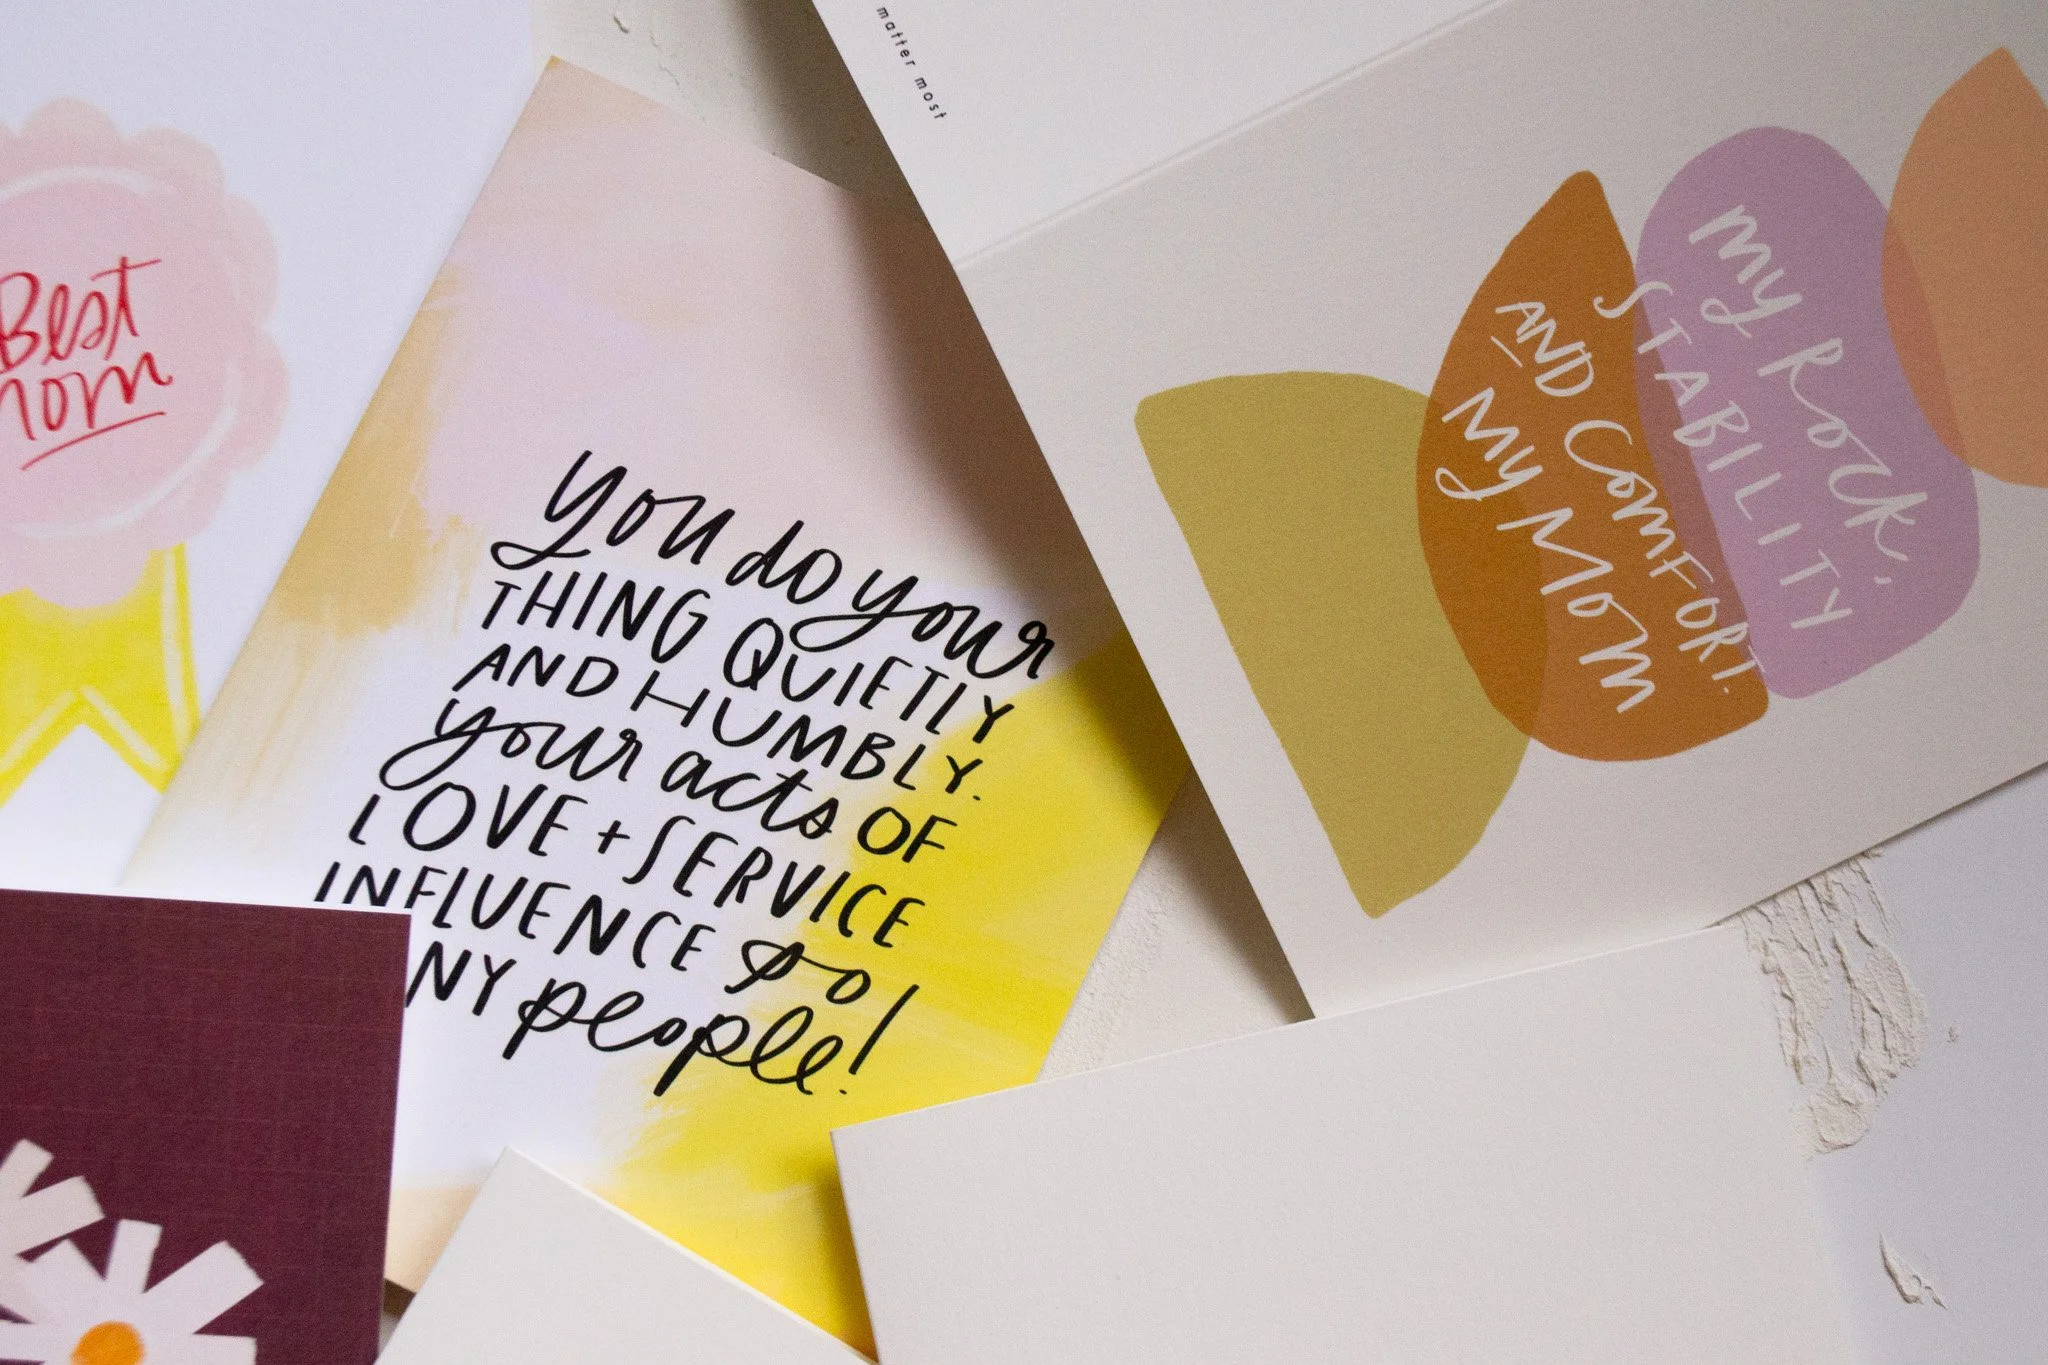 Best
mom
you do your
THING QUIETLY
AND HUMBLY.
your acts OF
LOVE + SERVICE
INFLUENCE so
people!
matter most
my Rock,
STABILITY
AND COMFORT.
My MOM